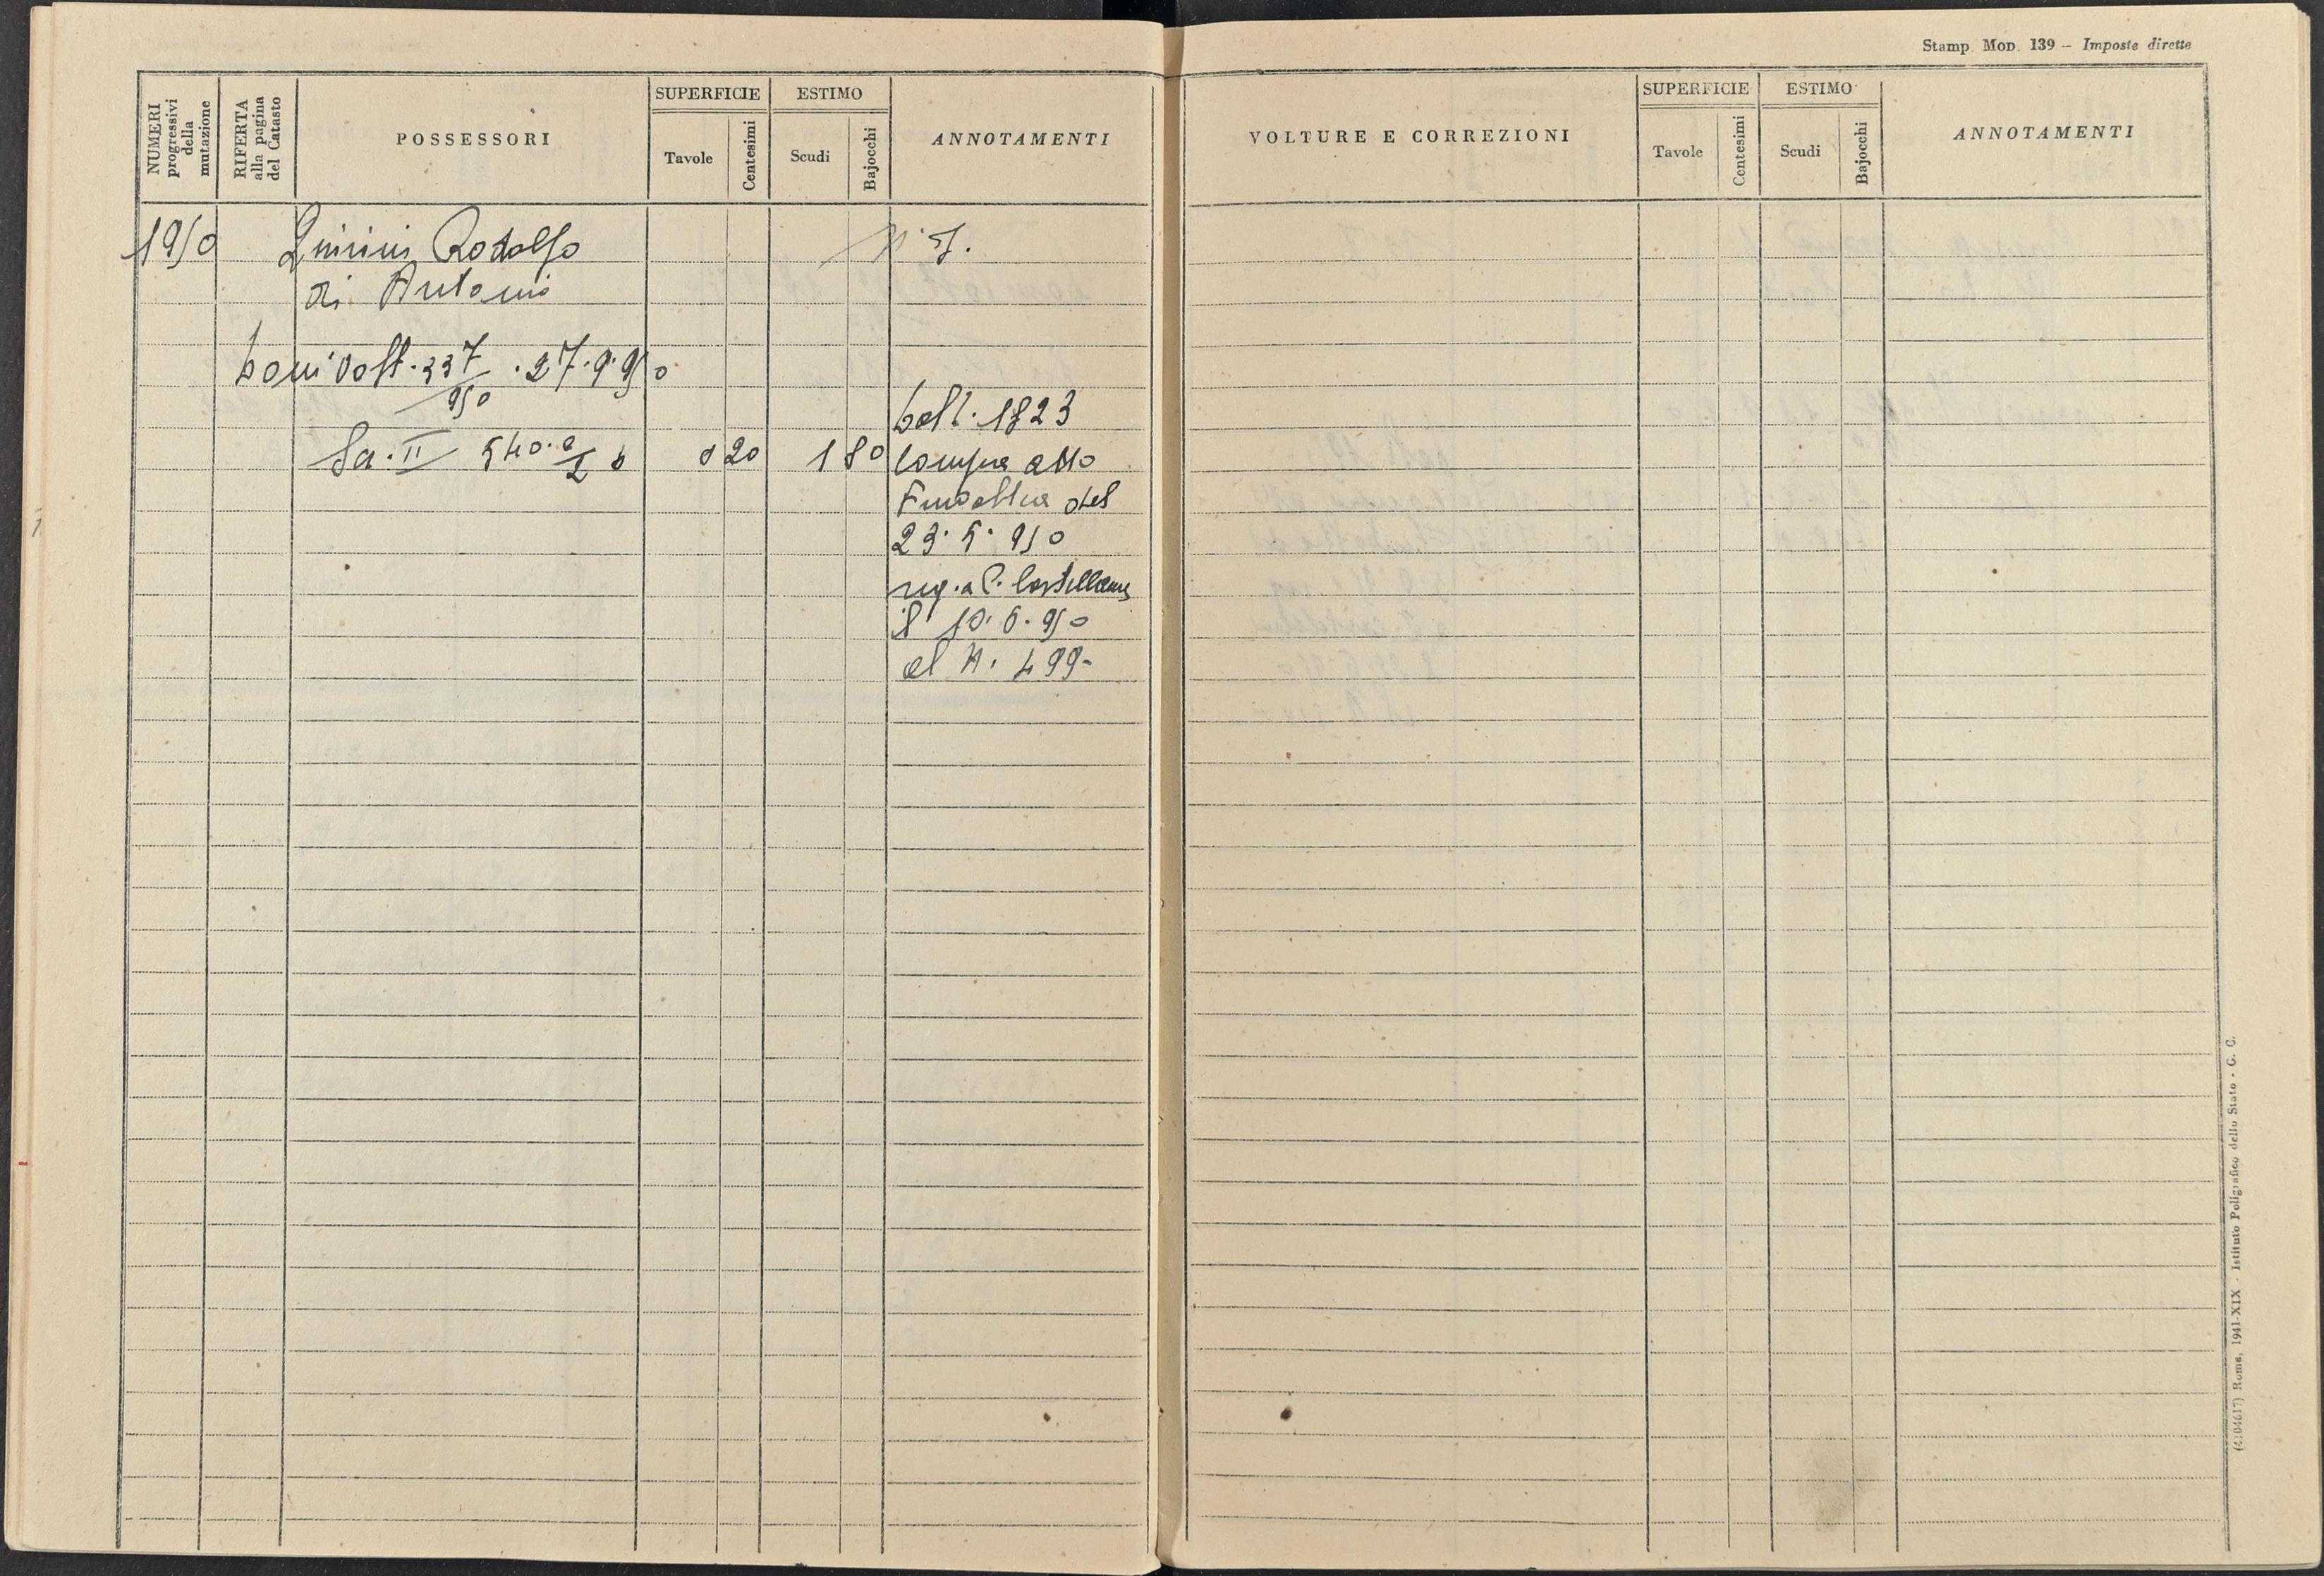 Stamp. Mod. 139 – Imposte dirette
NUMERI progressivi della mutazione
RIFERTA alla pagina del Catasto
POSSESSORI
SUPERFICIE
Tavole
Centesimi
ESTIMO
Scudi
Bajocchi
ANNOTAMENTI
VOLTURE E CORREZIONI
SUPERFICIE
Tavole
Centesimi
ESTIMO
Scudi
Bajocchi
ANNOTAMENTI
1950
Quirini Rodolfo
di Antonio
volt. 337/950 . 27.9.950
Sa. II 540
0 20 1 80
boll. 1823
Compra atto
del
23. 5. 950
reg. a C. Castellana
il 10. 6. 950
al N. 499-
(4104617) Roma, 1941-XIX - Istituto Poligrafico dello Stato - G. C.